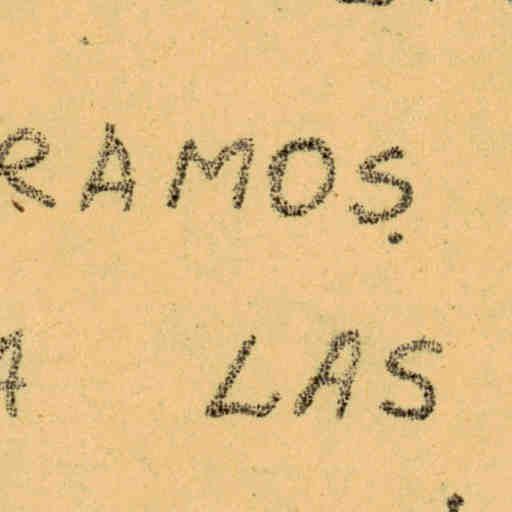 RAMOS.
A LAS